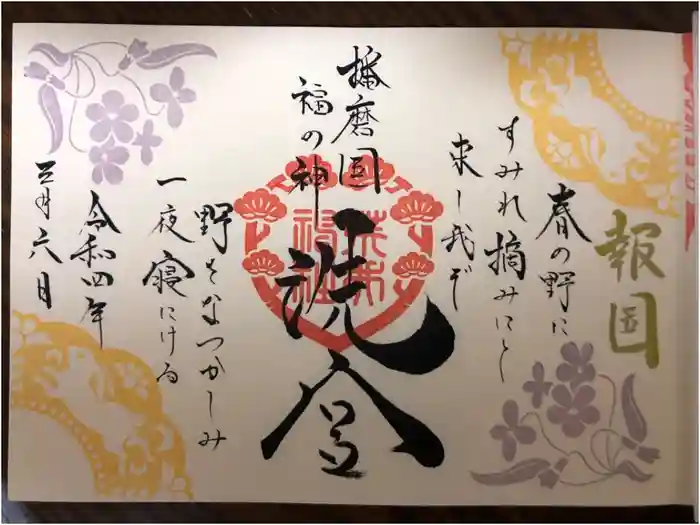 報国
春の野に
すみれ摘みにと
来し我ぞ
播磨国
福の神
荒井
神社
野をなつかしみ
一夜寝にける
令和四年
三月六日